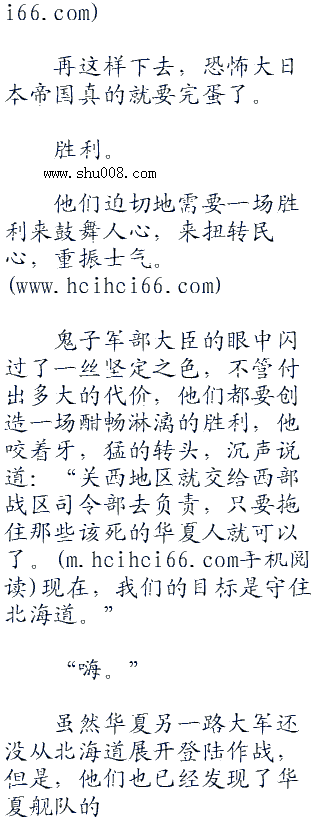 i66.com)
再这样下去，恐怖大日
本帝国真的就要完蛋了。
胜利。
www.shu008.com
他们迫切地需要一场胜
利来鼓舞人心，来扭转民
心，重振士气。
(www.hcihci66.com)
鬼子军部大臣的眼中闪
过了一丝坚定之色，不管付
出多大的代价，他们都要创
造一场酣畅淋漓的胜利，他
咬着牙，猛的转头，沉声说
道：“关西地区就交给西部
战区司令部去负责，只要拖
住那些该死的华夏人就可以
了。(m.hcihci66.com手机阅
读)现在，我们的目标是守住
北海道。”
“嗨。”
虽然华夏另一路大军还
没从北海道展开登陆作战，
但是，他们也已经发现了华
夏舰队的